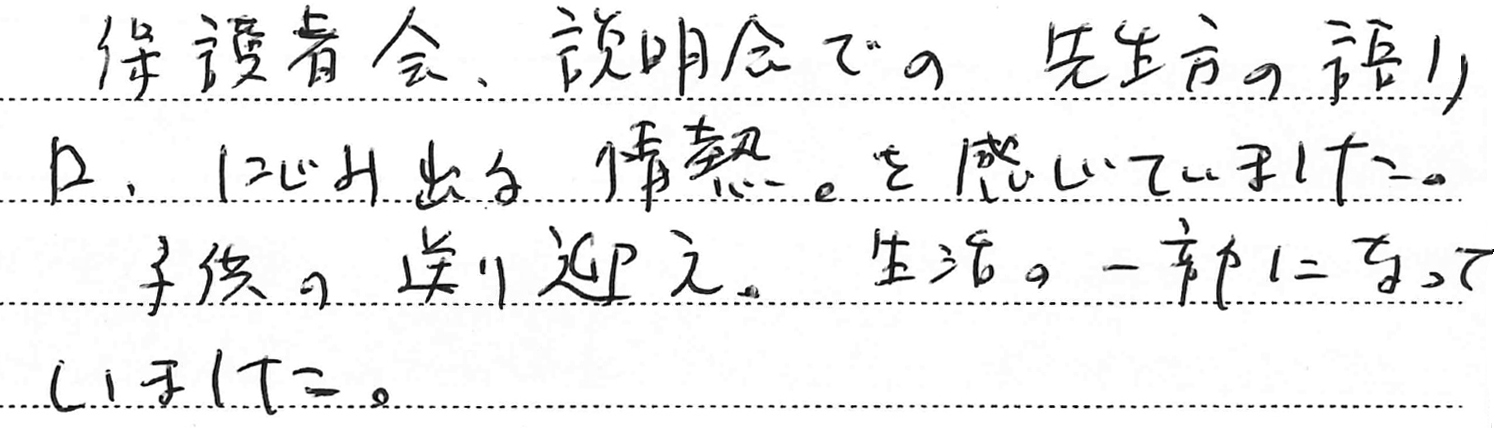 保護者会、説明会での 先生方の語り
口、にじみ出る 情熱。を感じていました。
子供の送り迎え。 生活の一部になって
いました。